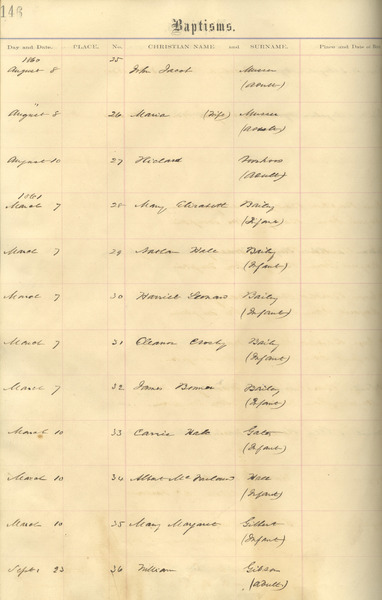 146
Baptisms.
Day and Date. PLACE. No. CHRISTIAN NAME and SURNAME. Place and Date of
1860
August 8 25 John Jacob
(Adult)
August 8 26 Maria (Wife)
(Adult)
August 10 27 Richard
(Adult)
1861
March 7 28 Mary Elizabeth Baily
(Infant)
March 7 29 Nathan Hale Baily
(Infant)
March 7 30 Harriet Leonard Baily
(Infant)
March 7 31 Eleanor Crosby Baily
(Infant)
March 7 32 James Bowen Bailey
(Infant)
March 10 33 Carrie Hale
(Infant)
March 10 34 Albert Mc Hale
(Infant)
March 10 35 Mary Margaret Gilbert
(Infant)
Sept. 23 36 William Gibson
(Adult)